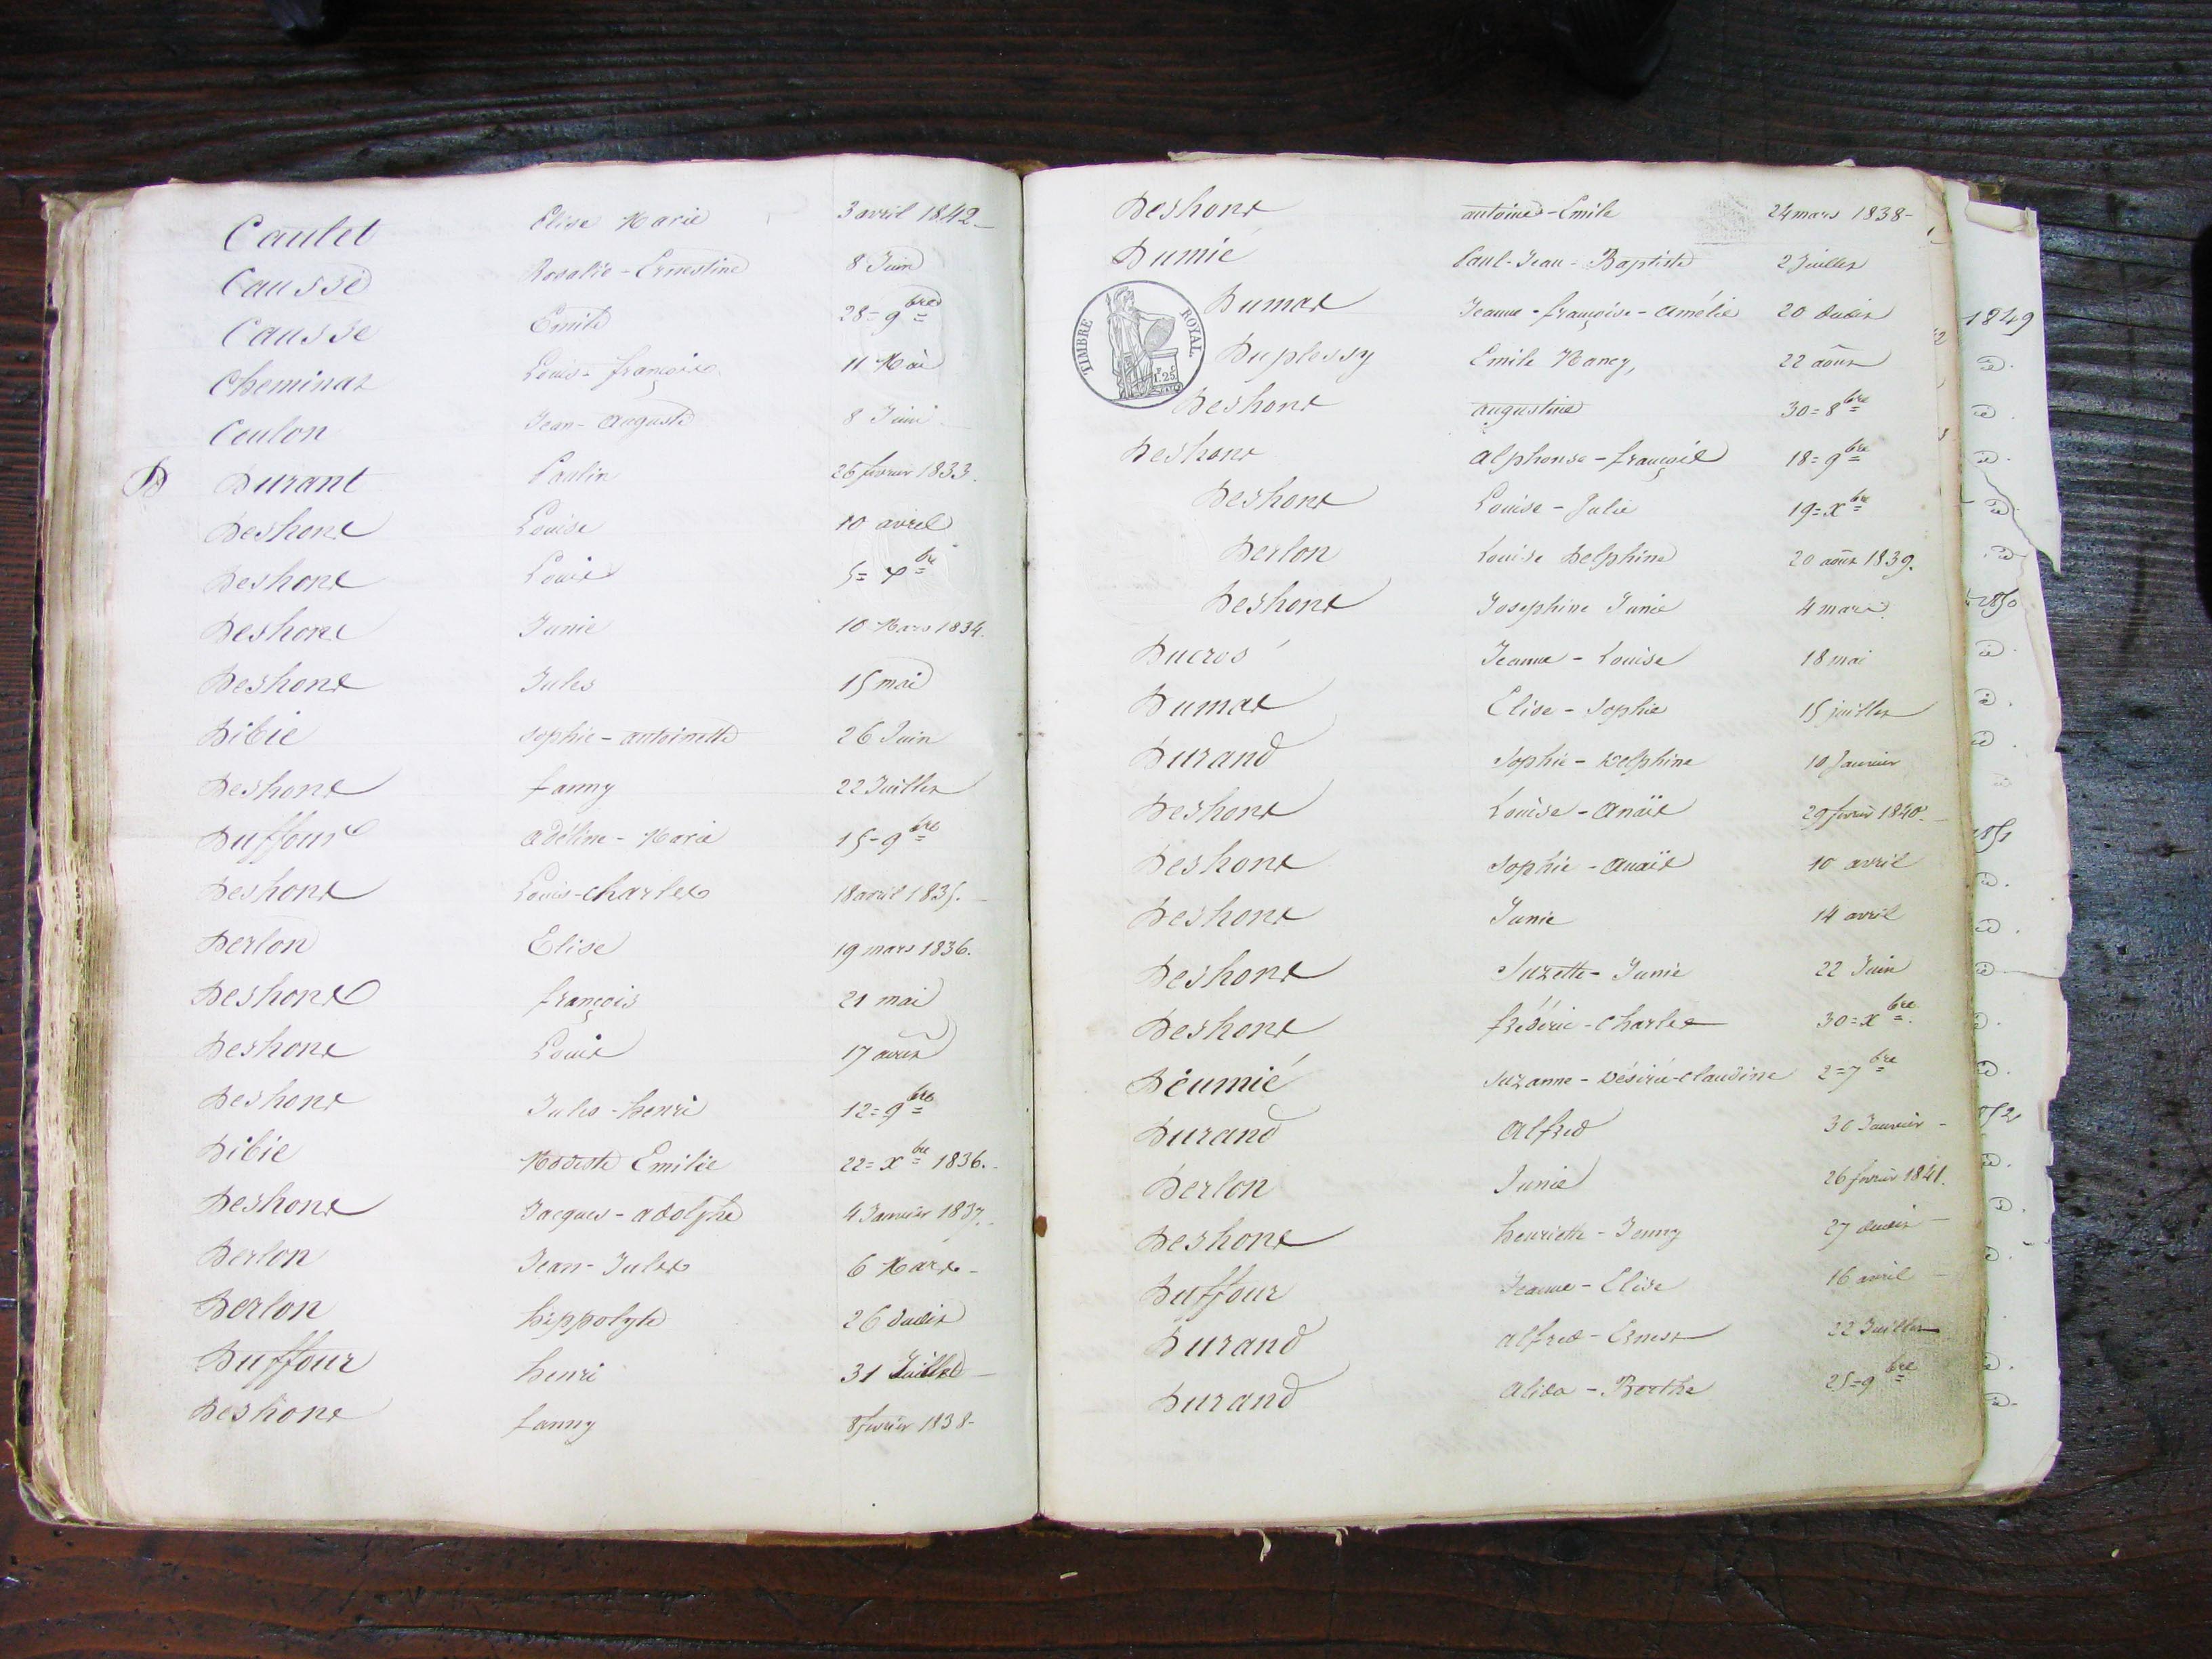 Caulet Elise Marie 3 avril 1842
Causse Rosalie-Ernestine 8 Juin
Causse Emile 28=9bre
Cheminat Louis-françois 11 Mai
Coulon Jean-Auguste 8 Juin
D Durant Paulin 26 fevrier 1833.
Deshons Louise 10 avril
Deshons Louis 5= bre
Deshons Junie 10 Mars 1834.
Deshons Jules 15 mai
Dibie Sophie-antoinette 26 Juin
Deshons fanny 22 Juillet
Duffour adeline-Marie 15=9bre
Deshons Louis-charles 18 avril 1835.
Derlon Elise 19 mars 1836.
Deshons françois 21 mai
Deshons Louis 17 aout
Deshons Jules-henri 12=9bre
Dibie Modeste Emilie 22=Xbre 1836.
Deshons Jacques-adolphe 4 Janvier 1837.
Derlon Jean-Jules 6 Mars
Derlon hippolyte 26 dudit
Duffour henri 31 Juillet
Deshons fanny 8 fevrier 1838-
Deshons antoine-Emile 24 mars 1838-
Dumié Paul-Jean-Baptiste 2 Juillet
Dumas Jeanne-françoise-amélie 20 dudit
TIMBRE ROYAL.
1F.25C
Duplessy Emile Nancy, 22 août
Deshons augustine 30=8bre
Deshons alphonse-françois 18=9bre
Deshons Louise-Julie 19=Xbre
Derlon Louise Delphine 20 août 1839.
Deshons Josephine Junie 4 mars
Ducros Jeanne-Louise 18 mai
Dumas Elise-Sophie 15 juillet
Durand Sophie-Delphine 10 Janvier
Deshons Louise-Anaïs 29 fevrier 1840.
Deshons Sophie-Anaïs 10 avril
Deshons Junie 14 avril
Deshons Suzette-Junie 22 Juin
Deshons frédéric-Charles 30=Xbre
Déumié Suzanne-Désirée-claudine 2=7bre
Durand Alfred 30 Janvier
Derlon Junie 26 fevrier 1841.
Deshons henriette-Jenny 27 dudit
Duffour Jeanne-Elise 16 avril
Durand alfred-Ernest 22 Juillet
Durand Alida-Berthe 25=9bre
1849
1850